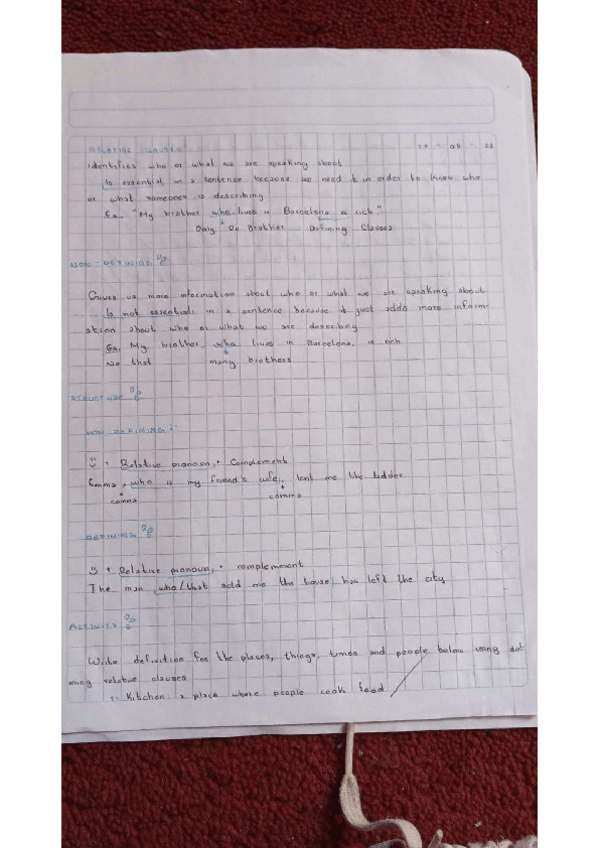 RELATIVE CLAUSES
Identifies who or what we are speaking about
Is essential in a sentence because we need it in order to know who
or what someones is describing
Ex. "My brother who lives in Barcelona is rich"
Only On Brother Defining Clauses
NON-DEFINING
Gives us more information about who or what we are speaking about
Is not essentials in a sentence because it just adds more inform-
ation about who or what we are describing
Ex. My brother, who lives in Barcelona, is rich
No that many brothers
STRUCTURE
NON DEFINING:
+ Relative pronoun, + Complement
, who is my friend's wife, lent me the ladder
comma comma
DEFINING
+ Relative pronoun, + complemment
The man who/that sold me the house, has left the city
ACTIVITY
Write definition for the places, things, times and people below using
relative clauses
Kitchen: a place where people cook food